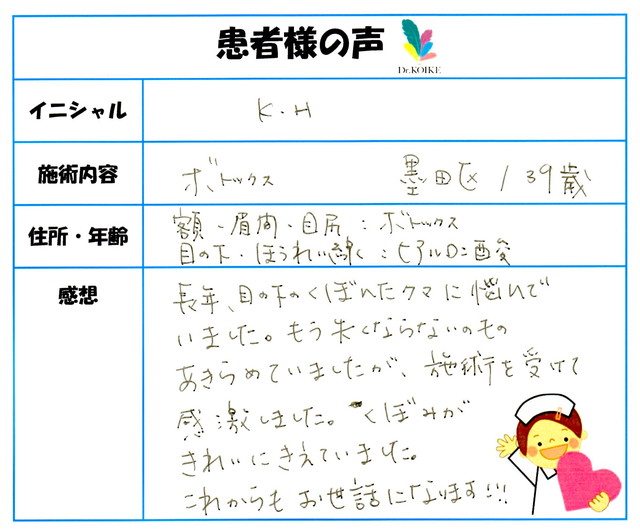 患者様の声
Dr.KOIKE
イニシャル K.H
施術内容 ボトックス 墨田区 / 39歳
住所・年齢 額・眉間・目尻:ボトックス
目の下・ほうれい線:ヒアルロン酸
感想 長年、目の下のくぼんだクマに悩んで
いました。もう失くならないのもの
あきらめていましたが、施術を受けて
感激しました。くぼみが
きれいにきえていました。
これからもお世話になります!!!